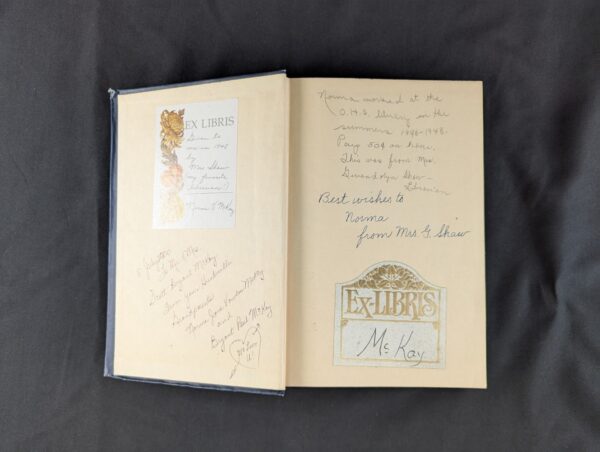 EX LIBRIS
Given to
me in 1948
by
Mrs Shaw
my favorite
librarian!)
Norma J. McKay
To Mr. Mrs.
Scott Bryant McKay
from your
Grandparents
Norma Jane McKay
and
Bryant McKay
We Love
U!
Norma worked at the
O.H.S. library in the
summers 1946-1948.
Pay 50¢ an hour.
This was from Mrs.
Gwendolyn Shaw -
Librarian
Best wishes to
Norma
from Mrs G. Shaw
EX-LIBRIS
McKay